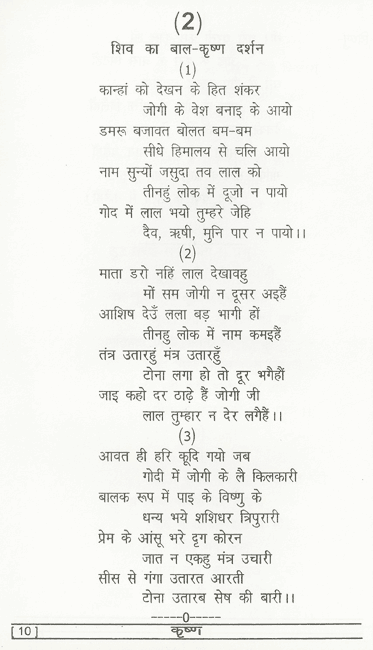 (2)
शिव का बाल-कृष्ण दर्शन
(1)
कान्हां को देखन के हित शंकर
जोगी के वेश बनाइ के आयो
डमरू बजावत बोलत बम-बम
सीधे हिमालय से चलि आयो
नाम सुन्यों जसुदा तव लाल को
तीनहुं लोक में दूजो न पायो
गोद में लाल भयो तुम्हरे जेहि
दैव, ऋषी, मुनि पार न पायो।।
(2)
माता डरो नहिं लाल देखावहु
मों सम जोगी न दूसर अइहैं
आशिष देउँ लला बड़ भागी हों
तीनहु लोक में नाम कमइहैं
तंत्र उतारहुं मंत्र उतारहुँ
टोना लगा हो तो दूर भगैहौं
जाइ कहो दर ठाढ़े हैं जोगी जी
लाल तुम्हार न देर लगैहैं।।
(3)
आवत ही हरि कूदि गयो जब
गोदी में जोगी के लै किलकारी
बालक रूप में पाइ के विष्णु के
धन्य भये शशिधर त्रिपुरारी
प्रेम के आंसू भरे दृग कोरन
जात न एकहु मंत्र उचारी
सीस से गंगा उतारत आरती
टोना उतारब सेष की बारी।।
-----0-----
[ 10 ] कृष्ण